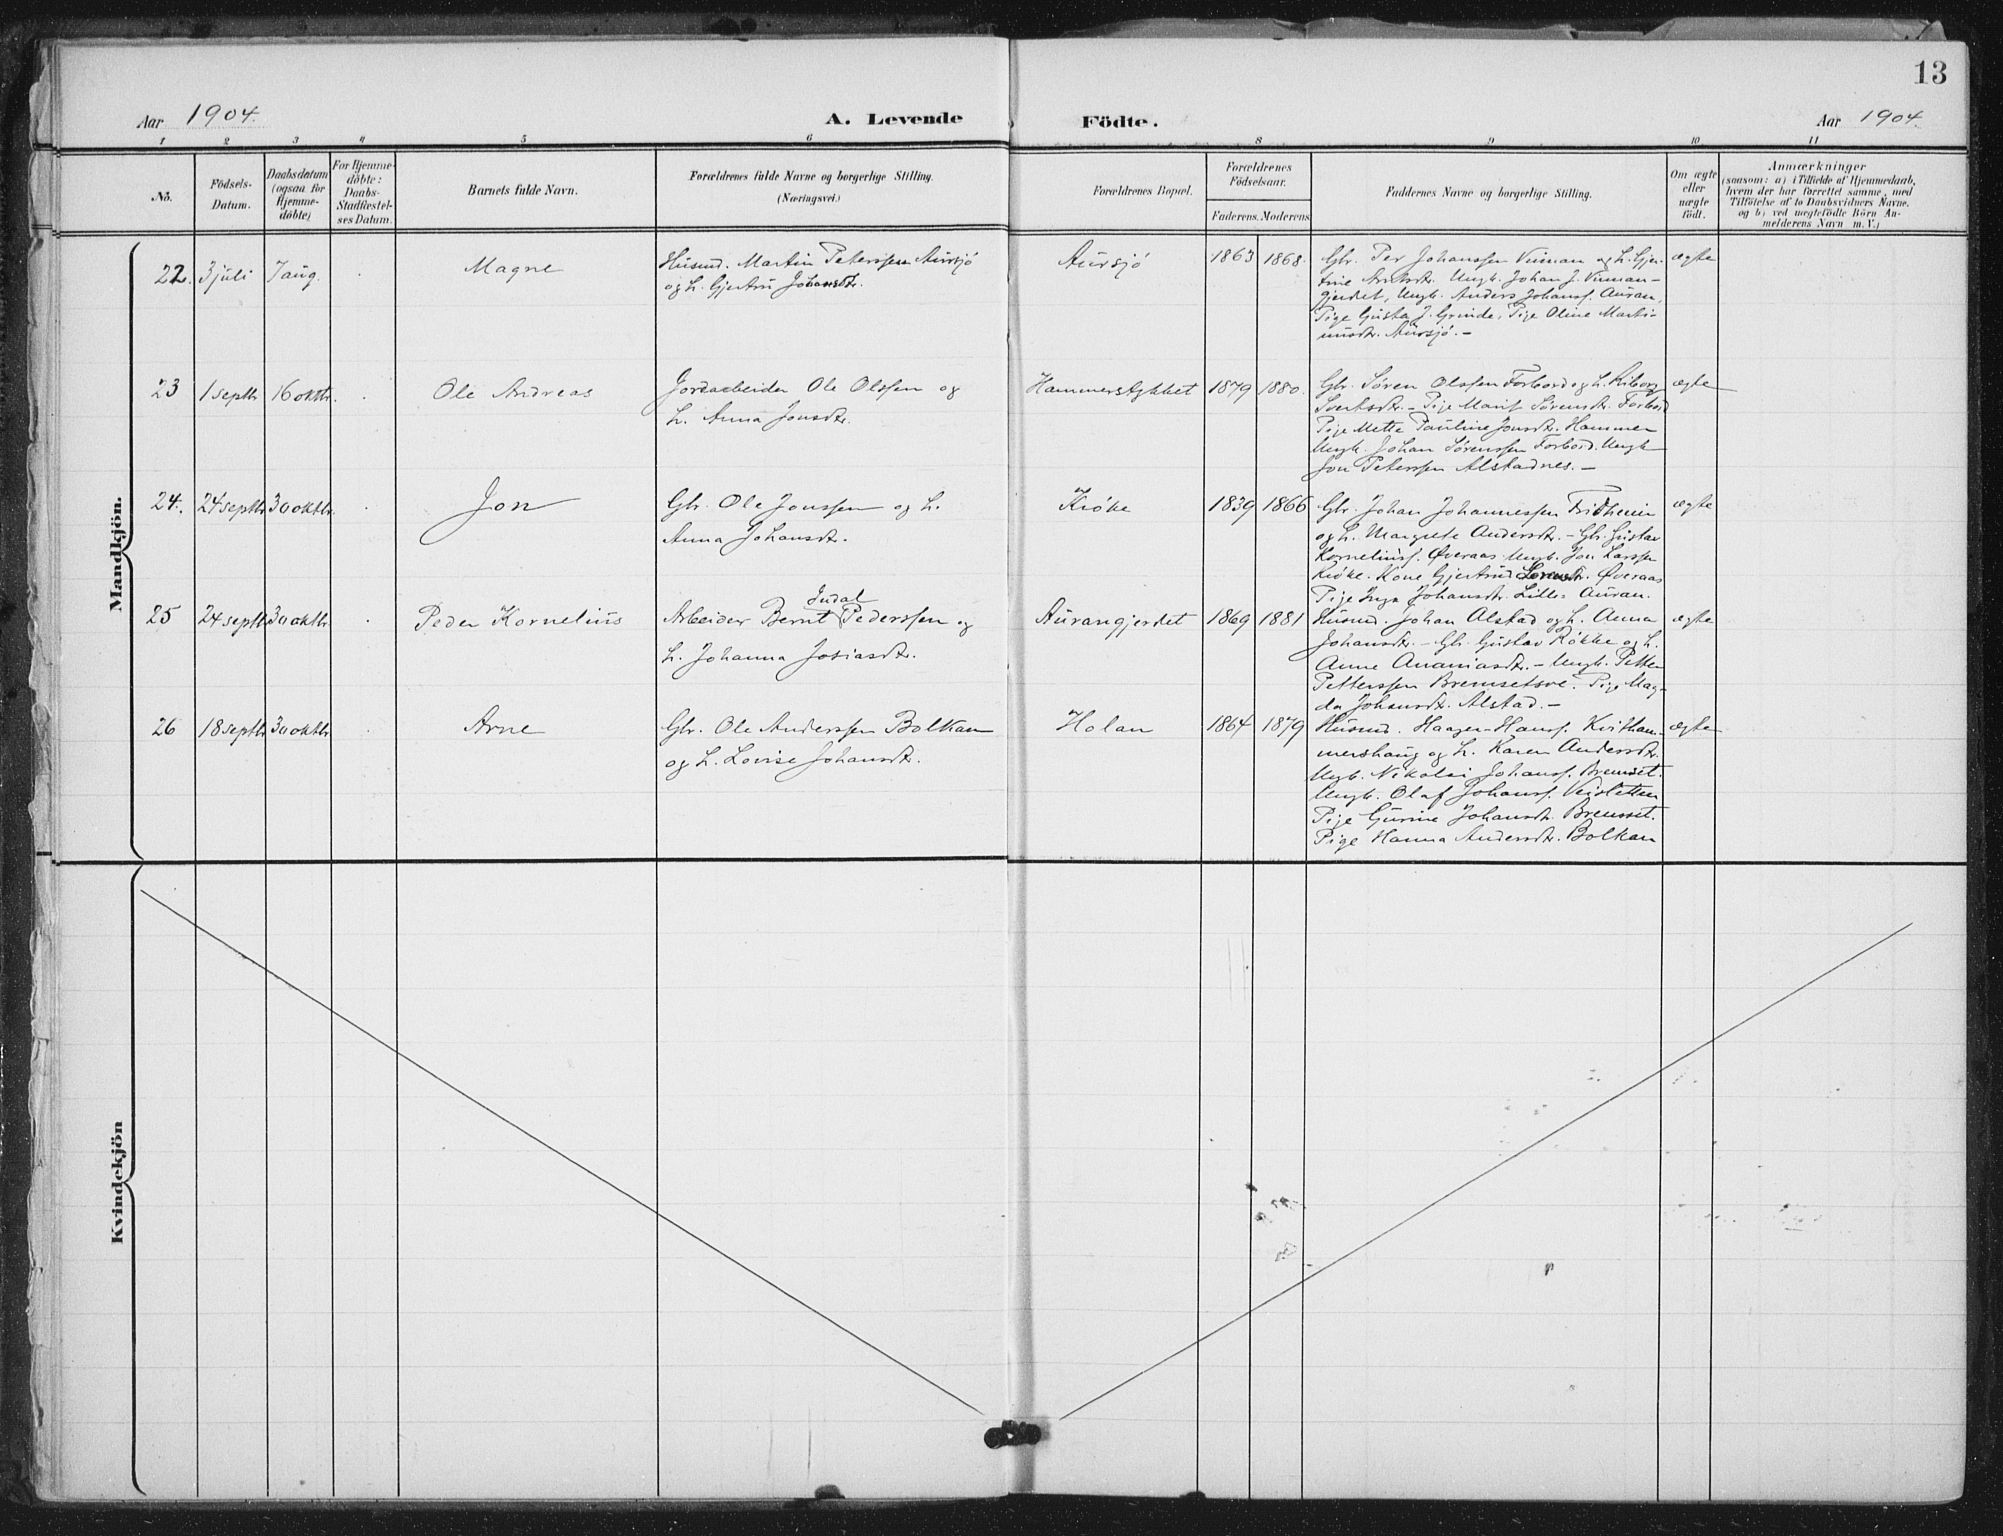 13
Aar 1904.
A. Levende Födte.
Aar 1904.
1 2 3 4 5 6 8 9 10 11
No.
Födsels-
Datum.
Daabsdatum
(ogsaa for
Hjemme-
döbte)
For Hjemme-
döbte:
Daabs-
Stadfæstel-
ses Datum.
Barnets fulde Navn.
Forældrenes fulde Navne og borgerlige Stilling.
(Næringsvei.)
Forældrenes Bopæl.
Forældrenes
Födselsaar.
Faderens. Moderens
Faddernes Navne og borgerlige Stilling.
Om ægte
eller
uægte
födt.
Anmærkninger
(saasom: a) i Tilfælde af Hjemmedaab,
hvem der har forrettet samme, med
Tilföielse af to Daabsvidners Navne.
og b) ved uægtefödte Börn An-
melderens Navn m. V.)
Mandkjön.
22. 3 juli 7 aug. Magne
Husmd. Martin Peterssen Aursjö
og h. Gjertru Johansdtr.
Aursjö 1863 1868.
Gbr. Per Johanssen Vinnan og h. Gjer-
tine Arntsdtr. Ungk. Johan J. Vinnan-
gjerdet, Ungk. Anders Johanss. Auran,
Pige Gusta J. Grinde, Pige Oline Marti-
nusdtr. Aursjö. –
ægte
23 1 septbr 16 oktbr. Ole Andreas
Jordarbeider Ole Olssen og
h. Anna Jonsdtr.
Hammerstykket 1879 1880.
Gbr. Søren Olssen Forbord og h. Kiborg
Sivertsdtr. – Pige Marit Sørensdtr. Forbord
Pige Mette Pauline Jonsdtr. Hammer
Ungk. Johan Sørenssen Forbord. Ungk
Jon Peterssen Alstadnes. –
ægte
24. 24 septbr 30 oktbr. Jon
Gbr. Ole Jonssen og h.
Anna Johansdtr.
Krøke 1839 1866
Gbr. Johan Johannessen Fridheim
og h. Margrete Andersdtr. – Gbr. Gustav
Korneliuss. Øveraas Ungk. Jon Larssen
Krøke. Kone Gjertrud Lorensdtr. Øveraas
Pige Inga Johansdtr. Lille Auran.
ægte
25 24 septbr 30 oktbr Peder Kornelius
Indal
Arbeider Bernt Pederssen og
h. Johanna Josiasdtr.
Aurangjerdet 1869 1881
Husmd. Johan Alstad og h. Anna
Johansdtr. – Gbr. Gustav Røkke og h.
Anne Ananiasdtr. – Ungk. Petter
Petterssen Bremsetsve. Pige Mag-
da Johansdtr. Alstad. –
ægte
26 18 septbr 30 oktbr Arne
Gbr. Ole Anderssen Bolkan
og h. Lovise Johansdtr.
Holan 1864 1879
Husmd. Haagen Hanss. Kvitham-
mershaug og h. Karen Andersdtr.
Ungk. Nikolai Johanss. Bremset.
Ungk. Olaf Johanss. Veisletten
Pige Gurine Johansdtr. Bremset.
Pige Hanna Andersdtr. Bolkan
ægte
Kvindekjön